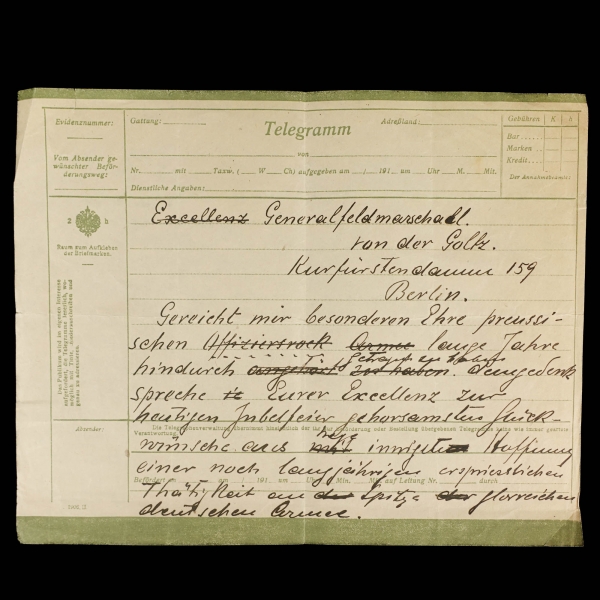 Evidenznummer:
Gattung:
Adreßland:
Gebühren K h
Telegramm
Bar
Marken
Kredit
Der Annahmebeamte
Vom Absender ge-
wünschter Beför-
derungsweg:
von
Nr. mit Taxw. ( W Ch) aufgegeben am / 191 um Uhr M. Mit.
Dienstliche Angaben:
2 h
Raum zum Aufkleben
der Briefmarken.
Excellenz Generalfeldmarschall.
von der Goltz.
Kurfürstendamm 159
Berlin.
Gereicht mir besonderen Ehre preussi-
schen Offiziersrock Armee lange Jahre
getragen zu haben
hindurch angehört zu haben. demgedenk
spreche Eurer Excellenz zur
heutigen Jubelfeier gehorsamsten Glück-
Absender:
wünsche aus mit innigster Hoffnung
einer noch langjährigen erspriesslichen
Befördert an / 191 um Uhr Min. Mit. auf Leitung Nr. durch
Thätigkeit an der Spitze der glorreichen
deutschen Armee.